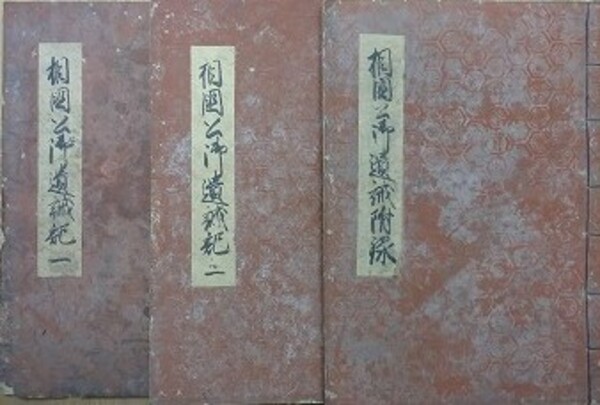 相國公御遺誡記 一
相國公御遺誡記 二
相國公御遺誡附錄